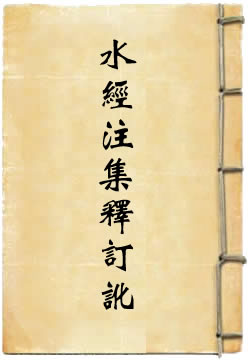 水經注集釋訂訛